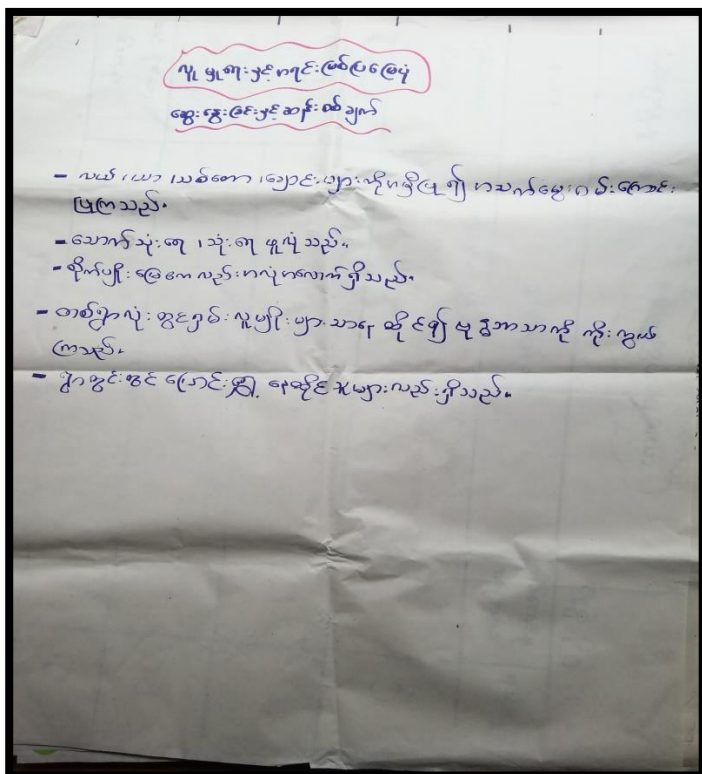 လူမှုရေးနှင့်အရင်းမြစ်ပြမြေပုံ
ဆွေးနွေးခြင်းနှင့်ဆန်းစစ်ချက်
- လယ်၊ ယာ၊ သစ်တော၊ ချောင်းများကိုအမှီပြု၍ အသက်မွေးဝမ်းကြောင်း
ပြုကြသည်။
- သောက်သုံးရေ၊ သုံးရေ ဖူလုံသည်။
- စိုက်ပျိုးမြေကလည်းအလုံအလောက်ရှိသည်။
- တစ်ရွာလုံးတွင်ရှမ်းလူမျိုးများသာနေထိုင်၍ ဗုဒ္ဓဘာသာကို ကိုးကွယ်
ကြသည်။
- ရွာတွင်းတွင် ပြောင်းရွှေ့ နေထိုင်သူများလည်းရှိသည်။